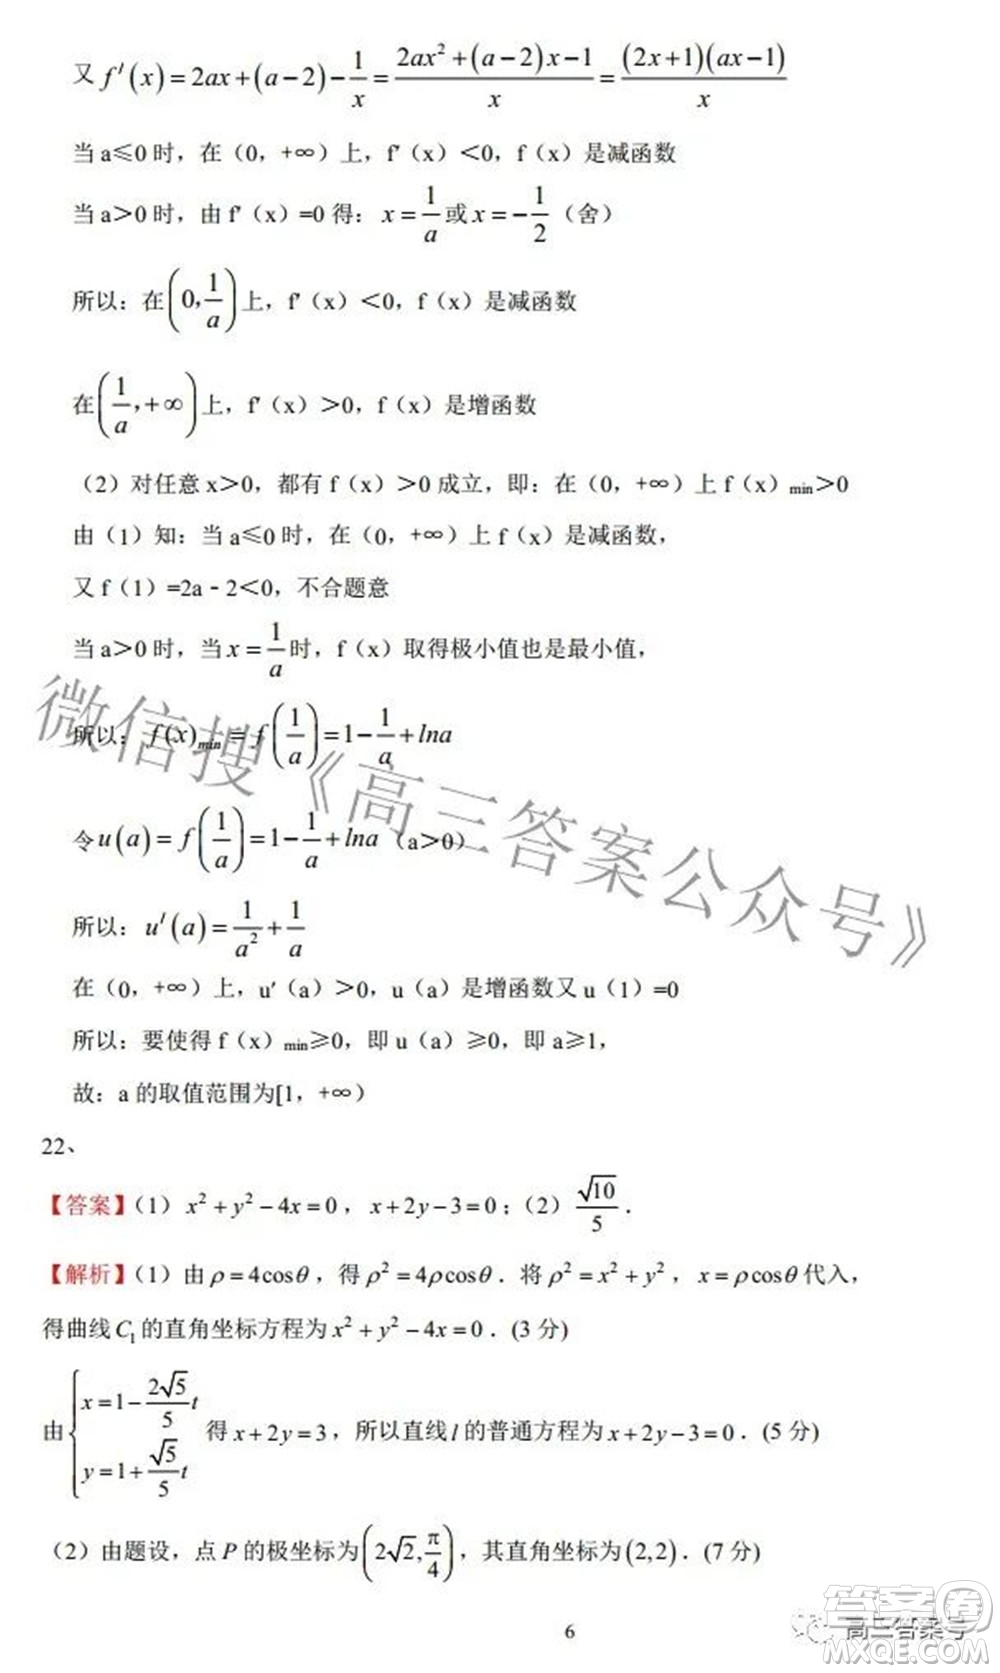 又 f′(x)=2ax+(a−2)−1/x=(2ax²+(a−2)x−1)/x=((2x+1)(ax−1))/x
当 a≤0 时，在（0，+∞）上，f′（x）＜0，f（x）是减函数
当 a＞0 时，由 f′（x）=0 得：x=1/a 或 x=−1/2（舍）
所以：在(0,1/a)上，f′（x）＜0，f（x）是减函数
在(1/a,+∞)上，f′（x）＞0，f（x）是增函数
（2）对任意 x＞0，都有 f（x）＞0 成立，即：在（0，+∞）上 f（x）min＞0
由（1）知：当 a≤0 时，在（0，+∞）上 f（x）是减函数，
又 f（1）=2a﹣2＜0，不合题意
当 a＞0 时，当 x=1/a 时，f（x）取得极小值也是最小值，
所以：f(x)min=f(1/a)=1−1/a+lna
令 u(a)=f(1/a)=1−1/a+lna（a＞0）
所以：u′(a)=1/a²+1/a
在（0，+∞）上，u′（a）＞0，u（a）是增函数又 u（1）=0
所以：要使得 f（x）min≥0，即 u（a）≥0，即 a≥1，
故：a 的取值范围为[1，+∞）
22、
【答案】（1）x²+y²−4x=0，x+2y−3=0；（2）√10/5．
【解析】（1）由 ρ=4cosθ，得 ρ²=4ρcosθ．将 ρ²=x²+y²，x=ρcosθ 代入，
得曲线 C₁ 的直角坐标方程为 x²+y²−4x=0．(3 分)
由{x=1−(2√5/5)t, y=1+(√5/5)t 得 x+2y=3，所以直线 l 的普通方程为 x+2y−3=0．(5 分)
（2）由题设，点 P 的极坐标为(2√2,π/4)，其直角坐标为(2,2)．(7 分)
6
微信搜《高三答案公众号》
高三答案号
答案卷
MXQE.COM